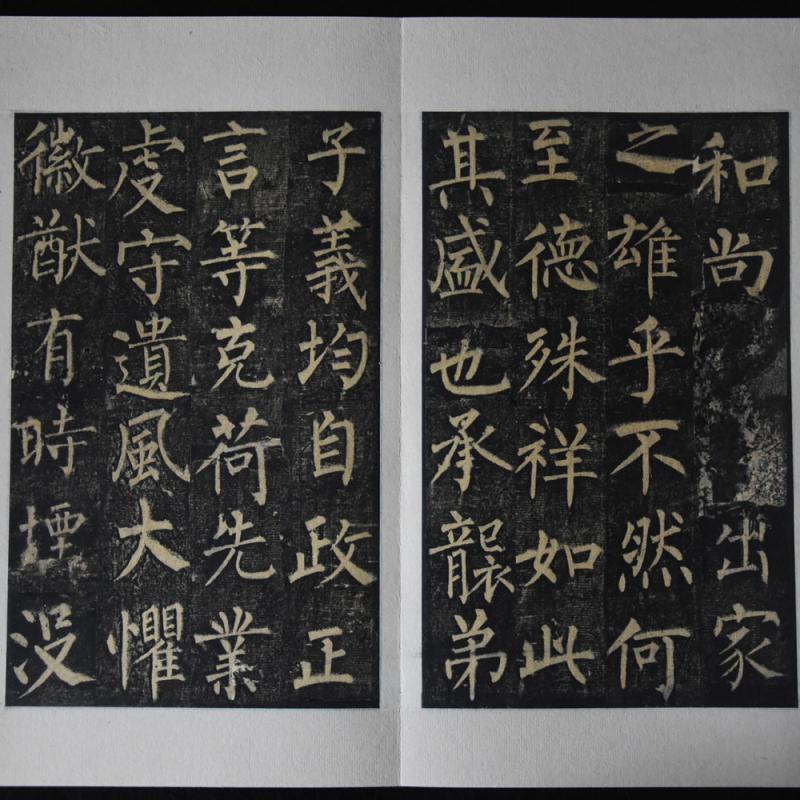 和尚出家
之雄乎不然何
至德殊祥如此
其盛也承襲弟
子義均自政正
言等克荷先業
虔守遺風大懼
徽猷有時堙没